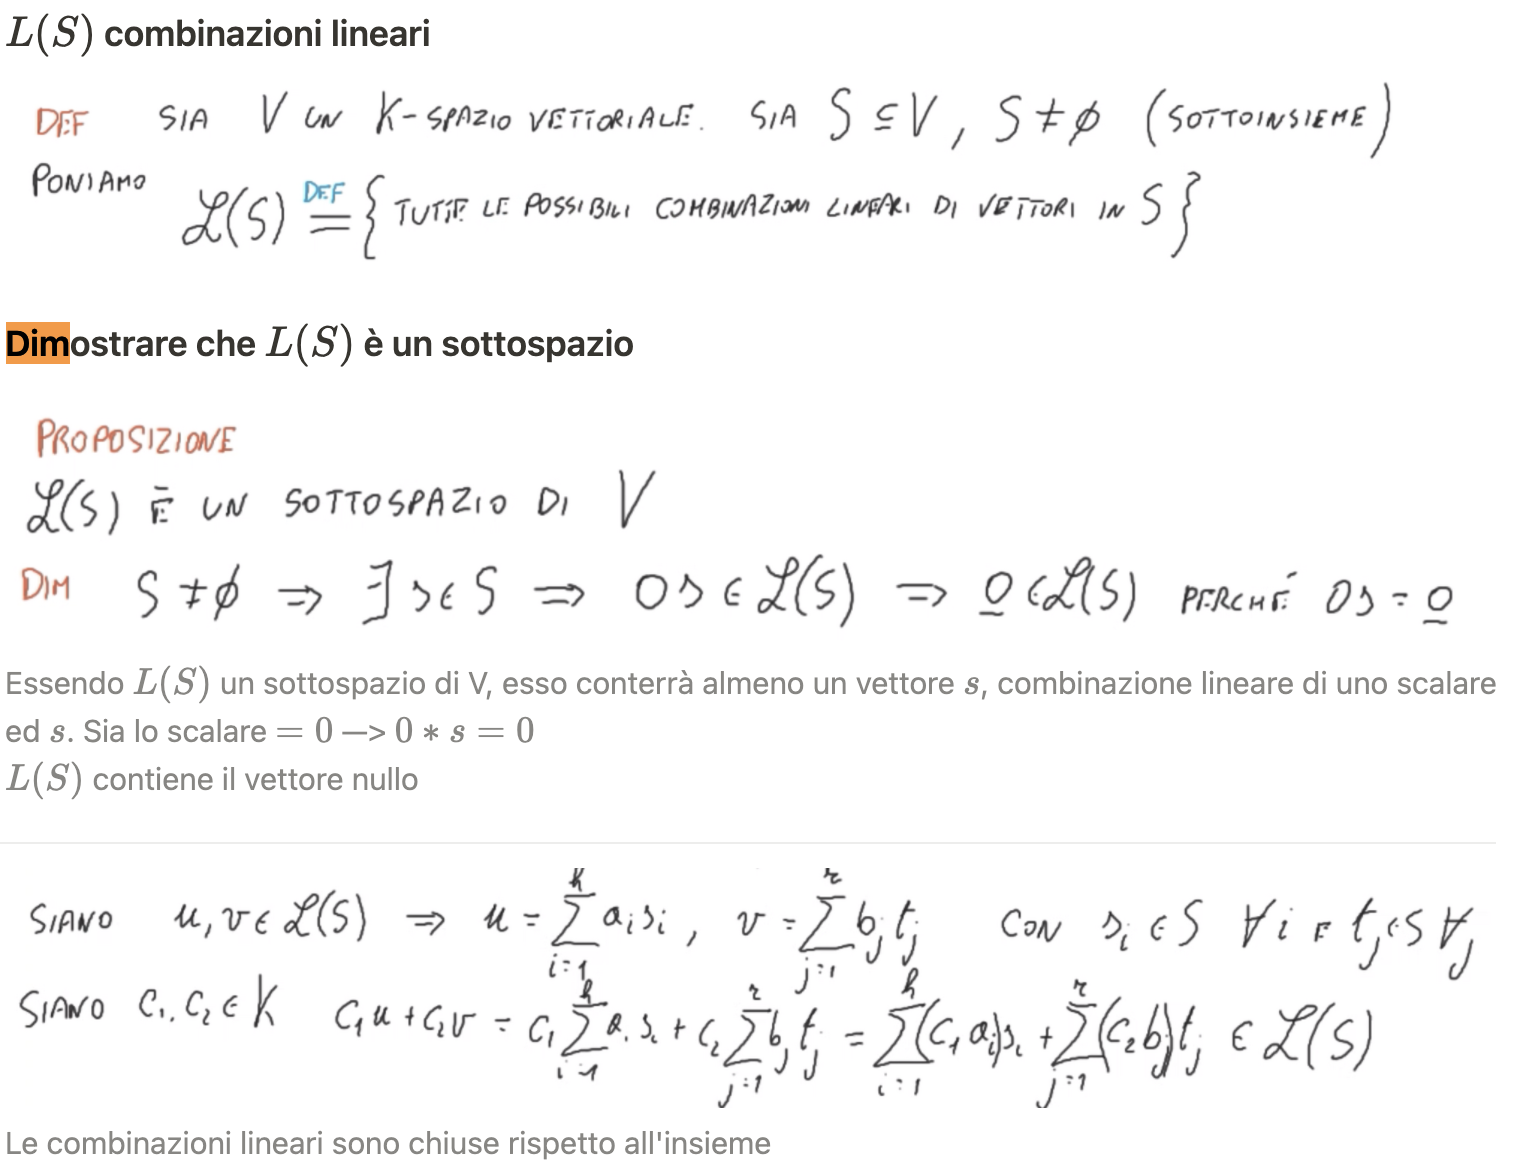 L(S) combinazioni lineari
DEF SIA V UN K-SPAZIO VETTORIALE. SIA S ⊆ V, S ≠ ∅ (SOTTOINSIEME)
PONIAMO
ℒ(S) DEF = { TUTTE LE POSSIBILI COMBINAZIONI LINEARI DI VETTORI IN S }
Dimostrare che L(S) è un sottospazio
PROPOSIZIONE
ℒ(S) È UN SOTTOSPAZIO DI V
DIM S ≠ ∅ ⇒ ∃ s ∈ S ⇒ 0s ∈ ℒ(S) ⇒ 0 ∈ ℒ(S) PERCHÉ 0s = 0
Essendo L(S) un sottospazio di V, esso conterrà almeno un vettore s, combinazione lineare di uno scalare
ed s. Sia lo scalare = 0 —> 0 * s = 0
L(S) contiene il vettore nullo
SIANO u, v ∈ ℒ(S) ⇒ u = ∑_{i=1}^{k} a_i s_i , v = ∑_{j=1}^{r} b_j t_j CON s_i ∈ S ∀i E t_j ∈ S ∀j
SIANO c_1, c_2 ∈ K c_1 u + c_2 v = c_1 ∑_{i=1}^{k} a_i s_i + c_2 ∑_{j=1}^{r} b_j t_j = ∑_{i=1}^{k} (c_1 a_i) s_i + ∑_{j=1}^{r} (c_2 b_j) t_j ∈ ℒ(S)
Le combinazioni lineari sono chiuse rispetto all'insieme